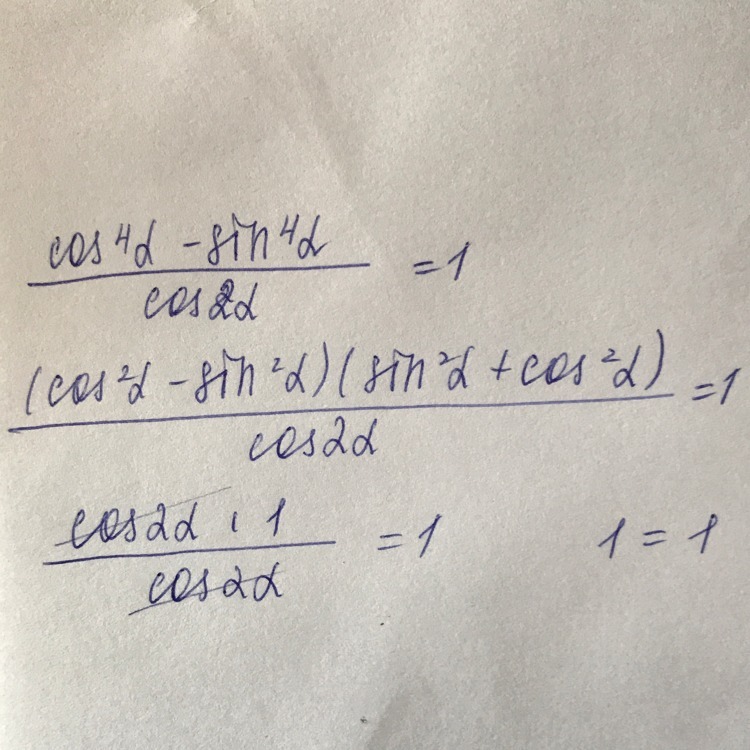 cos⁴α - sin⁴α
= 1
cos2α
(cos²α - sin²α)(sin²α + cos²α)
= 1
cos2α
cos2α · 1
= 1    1 = 1
cos2α